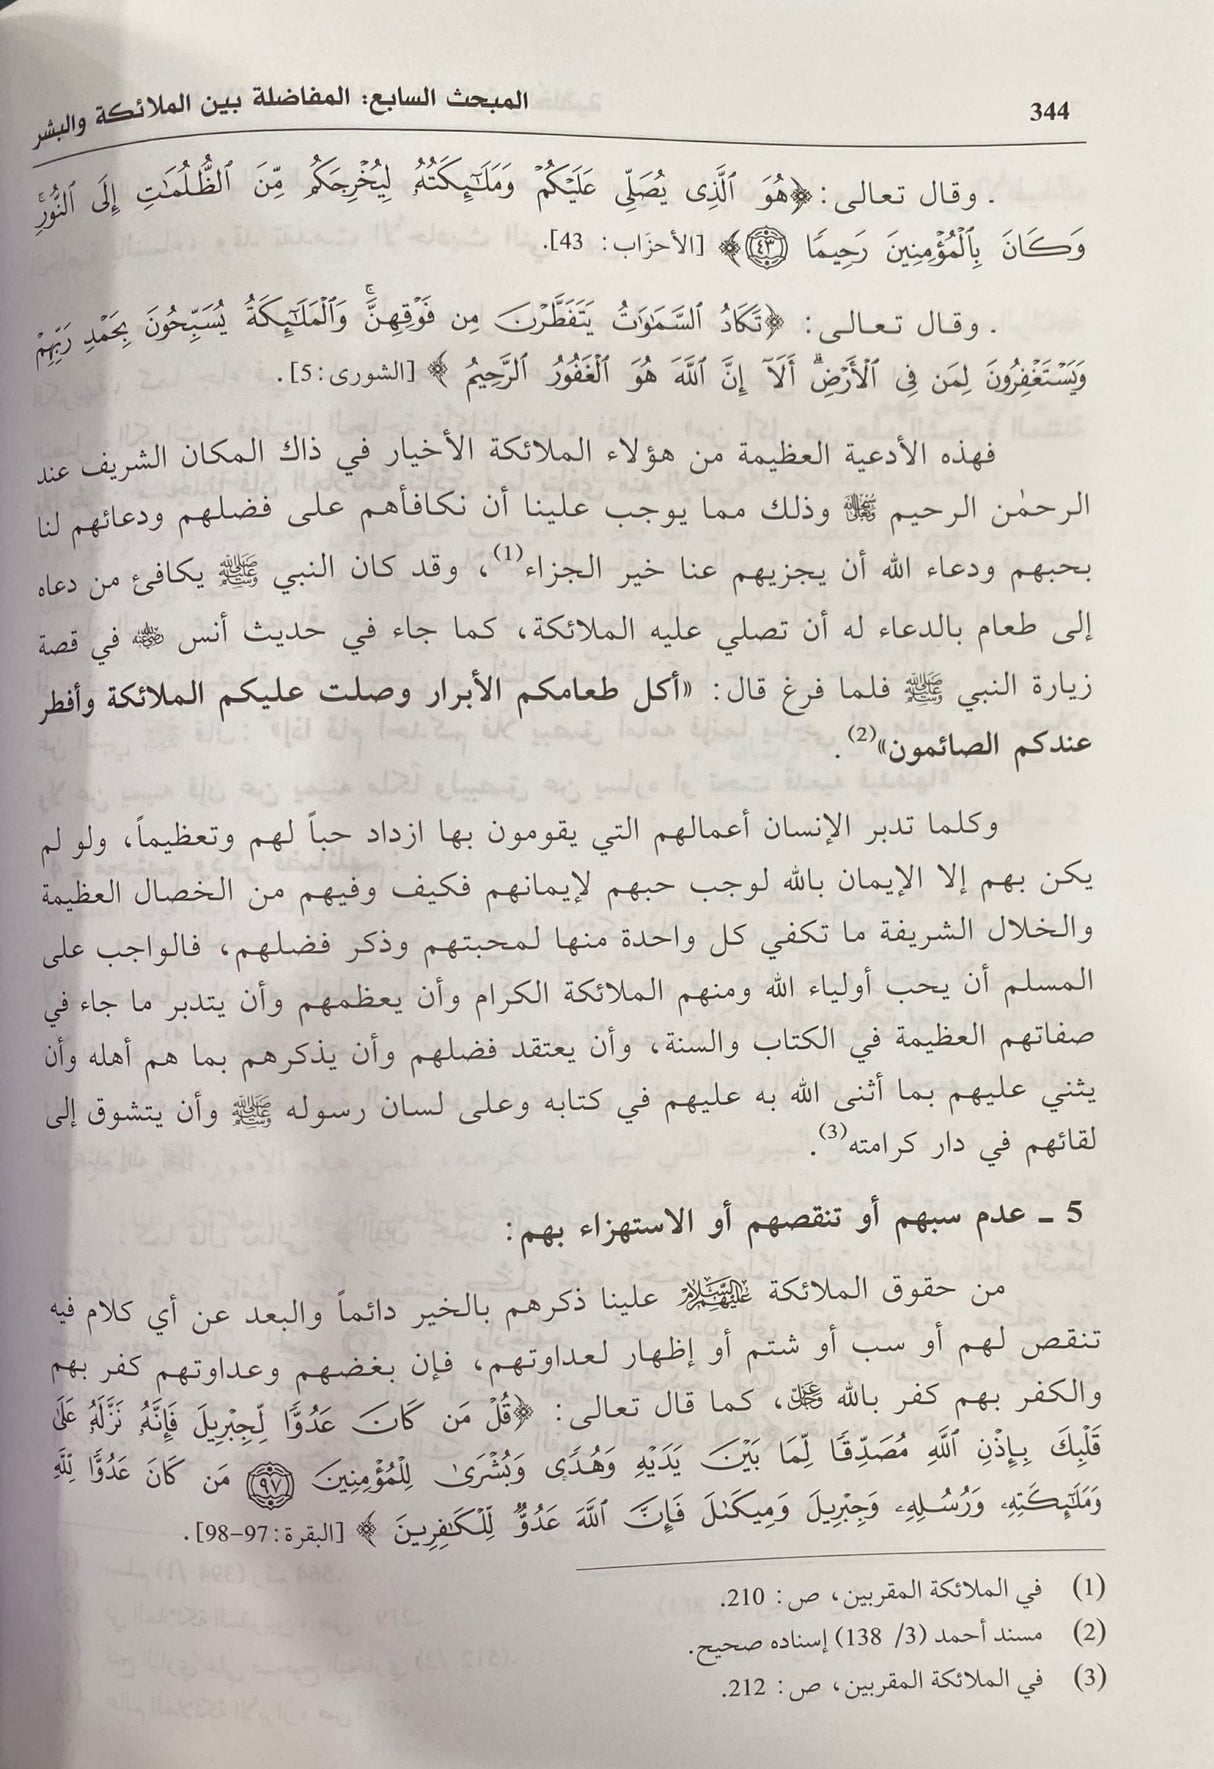 344
المبحث السابع: المفاضلة بين الملائكة والبشر
. وقال تعالى: ﴿هُوَ ٱلَّذِى يُصَلِّى عَلَيْكُمْ وَمَلَٰٓئِكَتُهُۥ لِيُخْرِجَكُم مِّنَ ٱلظُّلُمَٰتِ إِلَى ٱلنُّورِۚ
وَكَانَ بِٱلْمُؤْمِنِينَ رَحِيمًا ٤٣﴾ [الأحزَاب: 43].
. وقال تعالى: ﴿تَكَادُ ٱلسَّمَٰوَٰتُ يَتَفَطَّرْنَ مِن فَوْقِهِنَّۚ وَٱلْمَلَٰٓئِكَةُ يُسَبِّحُونَ بِحَمْدِ رَبِّهِمْ
وَيَسْتَغْفِرُونَ لِمَن فِى ٱلْأَرْضِۗ أَلَآ إِنَّ ٱللَّهَ هُوَ ٱلْغَفُورُ ٱلرَّحِيمُ﴾ [الشورى: 5].
فهذه الأدعية العظيمة من هؤلاء الملائكة الأخيار في ذاك المكان الشريف عند
الرحمٰن الرحيم وذلك مما يوجب علينا أن نكافأهم على فضلهم ودعائهم لنا
بحبهم ودعاء الله أن يجزيهم عنا خير الجزاء(1)، وقد كان النبي ﷺ يكافئ من دعاه
إلى طعام بالدعاء له أن تصلي عليه الملائكة، كما جاء في حديث أنس رضي الله عنه في قصة
زيارة النبي ﷺ فلما فرغ قال: «أكل طعامكم الأبرار وصلت عليكم الملائكة وأفطر
عندكم الصائمون»(2).
وكلما تدبر الإنسان أعمالهم التي يقومون بها ازداد حباً لهم وتعظيماً، ولو لم
يكن بهم إلا الإيمان بالله لوجب حبهم لإيمانهم فكيف وفيهم من الخصال العظيمة
والخلال الشريفة ما تكفي كل واحدة منها لمحبتهم وذكر فضلهم، فالواجب على
المسلم أن يحب أولياء الله ومنهم الملائكة الكرام وأن يعظمهم وأن يتدبر ما جاء في
صفاتهم العظيمة في الكتاب والسنة، وأن يعتقد فضلهم وأن يذكرهم بما هم أهله وأن
يثني عليهم بما أثنى الله به عليهم في كتابه وعلى لسان رسوله ﷺ وأن يتشوق إلى
لقائهم في دار كرامته(3).
5 ـ عدم سبهم أو تنقصهم أو الاستهزاء بهم:
من حقوق الملائكة عليهم السلام علينا ذكرهم بالخير دائماً والبعد عن أي كلام فيه
تنقص لهم أو سب أو شتم أو إظهار لعداوتهم، فإن بغضهم وعداوتهم كفر بهم
والكفر بهم كفر بالله عز وجل، كما قال تعالى: ﴿قُلْ مَن كَانَ عَدُوًّا لِّجِبْرِيلَ فَإِنَّهُۥ نَزَّلَهُۥ عَلَىٰ
قَلْبِكَ بِإِذْنِ ٱللَّهِ مُصَدِّقًا لِّمَا بَيْنَ يَدَيْهِ وَهُدًى وَبُشْرَىٰ لِلْمُؤْمِنِينَ ٩٧ مَن كَانَ عَدُوًّا لِّلَّهِ
وَمَلَٰٓئِكَتِهِۦ وَرُسُلِهِۦ وَجِبْرِيلَ وَمِيكَىٰلَ فَإِنَّ ٱللَّهَ عَدُوٌّ لِّلْكَٰفِرِينَ﴾ [البقرة: 97-98].
(1) في الملائكة المقربين، ص: 210.
(2) مسند أحمد (3/ 138) إسناده صحيح.
(3) في الملائكة المقربين، ص: 212.